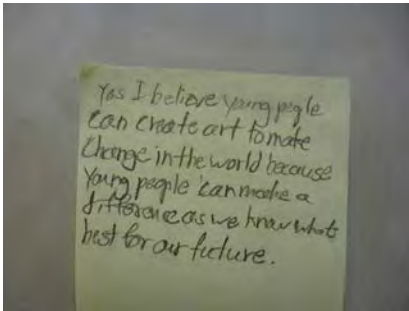 Yas I believe young people
can create art to make
change in the world because
young people can make a
difference as we know whats
best for our future.